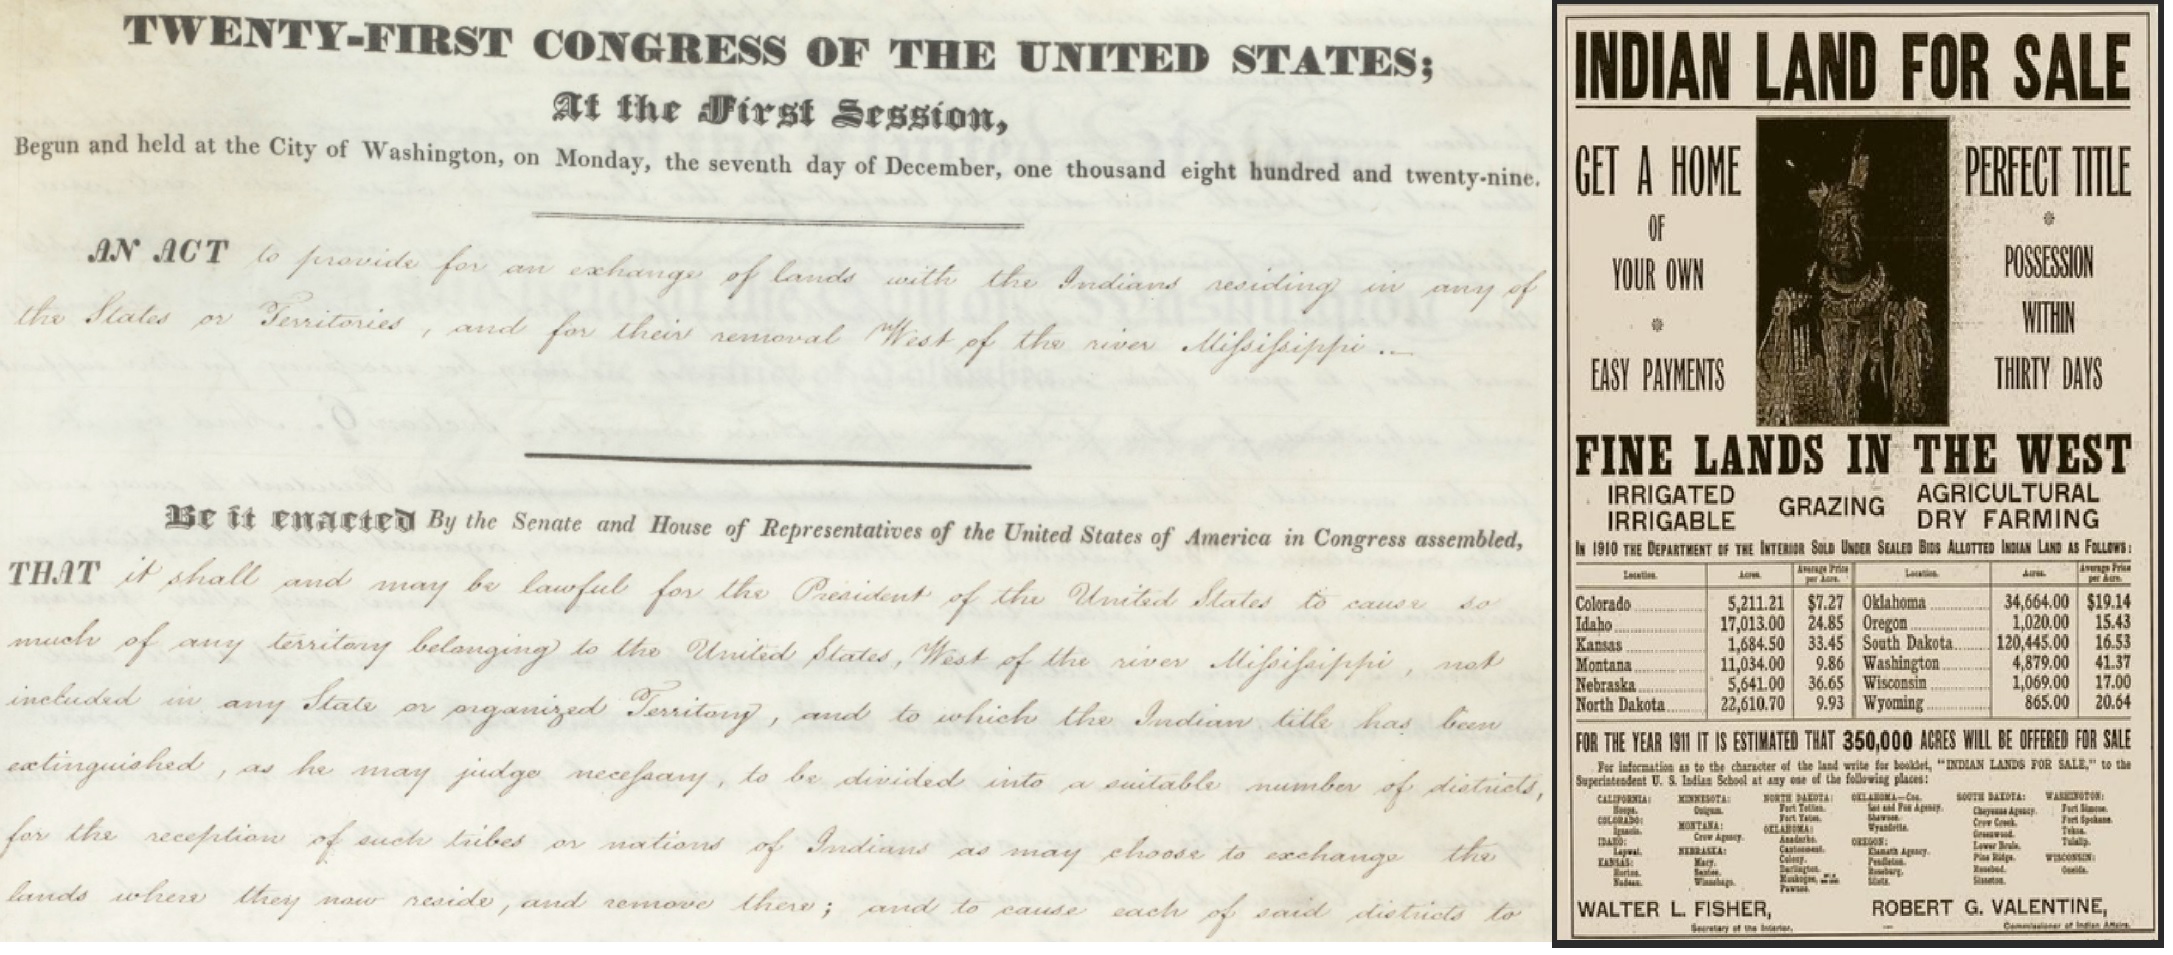 TWENTY-FIRST CONGRESS OF THE UNITED STATES;
At the First Session,
Begun and held at the City of Washington, on Monday, the seventh day of December, one thousand eight hundred and twenty-nine.
AN ACT to provide for an exchange of lands with the Indians residing in any of
the States or Territories, and for their removal West of the river Mississippi..
Be it enacted By the Senate and House of Representatives of the United States of America in Congress assembled,
THAT it shall and may be lawful for the President of the United States to cause so
much of any territory belonging to the United States, West of the river Mississippi, not
included in any State or organized Territory, and to which the Indian title has been
extinguished, as he may judge necessary, to be divided into a suitable number of districts,
for the reception of such tribes or nations of Indians as may choose to exchange the
lands where they now reside, and remove there; and to cause each of said districts to
INDIAN LAND FOR SALE
GET A HOME
OF
YOUR OWN
EASY PAYMENTS
PERFECT TITLE
POSSESSION
WITHIN
THIRTY DAYS
FINE LANDS IN THE WEST
IRRIGATED
IRRIGABLE
GRAZING
AGRICULTURAL
DRY FARMING
IN 1910 THE DEPARTMENT OF THE INTERIOR SOLD UNDER SEALED BIDS ALLOTTED INDIAN LAND AS FOLLOWS:
Location. Acres. Average Price per Acre. Location. Acres. Average Price per Acre.
Colorado 5,211.21 $7.27 Oklahoma 34,664.00 $19.14
Idaho 17,013.00 24.85 Oregon 1,020.00 15.43
Kansas 1,684.50 33.45 South Dakota 120,445.00 16.53
Montana 11,034.00 9.86 Washington 4,879.00 41.37
Nebraska 5,641.00 36.65 Wisconsin 1,069.00 17.00
North Dakota 22,610.70 9.93 Wyoming 865.00 20.64
FOR THE YEAR 1911 IT IS ESTIMATED THAT 350,000 ACRES WILL BE OFFERED FOR SALE
For information as to the character of the land write for booklet, "INDIAN LANDS FOR SALE," to the
Superintendent U. S. Indian School at any one of the following places:
CALIFORNIA:
Hoopa.
COLORADO:
Ignacio.
IDAHO:
Lapwai.
KANSAS:
Horton.
Nadeau.
MINNESOTA:
Onigum.
MONTANA:
Crow Agency.
NEBRASKA:
Macy.
Santee.
Winnebago.
NORTH DAKOTA:
Fort Totten.
Fort Yates.
OKLAHOMA:
Anadarko.
Cantonment.
Colony.
Darlington.
Muskogee,
Pawnee.
OKLAHOMA—Con.
Sac and Fox Agency.
Shawnee.
Wyandotte.
OREGON:
Klamath Agency.
Pendleton.
Roseburg.
Siletz.
SOUTH DAKOTA:
Cheyenne Agency.
Crow Creek.
Greenwood.
Lower Brule.
Pine Ridge.
Rosebud.
Sisseton.
WASHINGTON:
Fort Simcoe.
Fort Spokane.
Tekoa.
Tulalip.
WISCONSIN:
Oneida.
WALTER L. FISHER,
Secretary of the Interior.
ROBERT G. VALENTINE,
Commissioner of Indian Affairs.